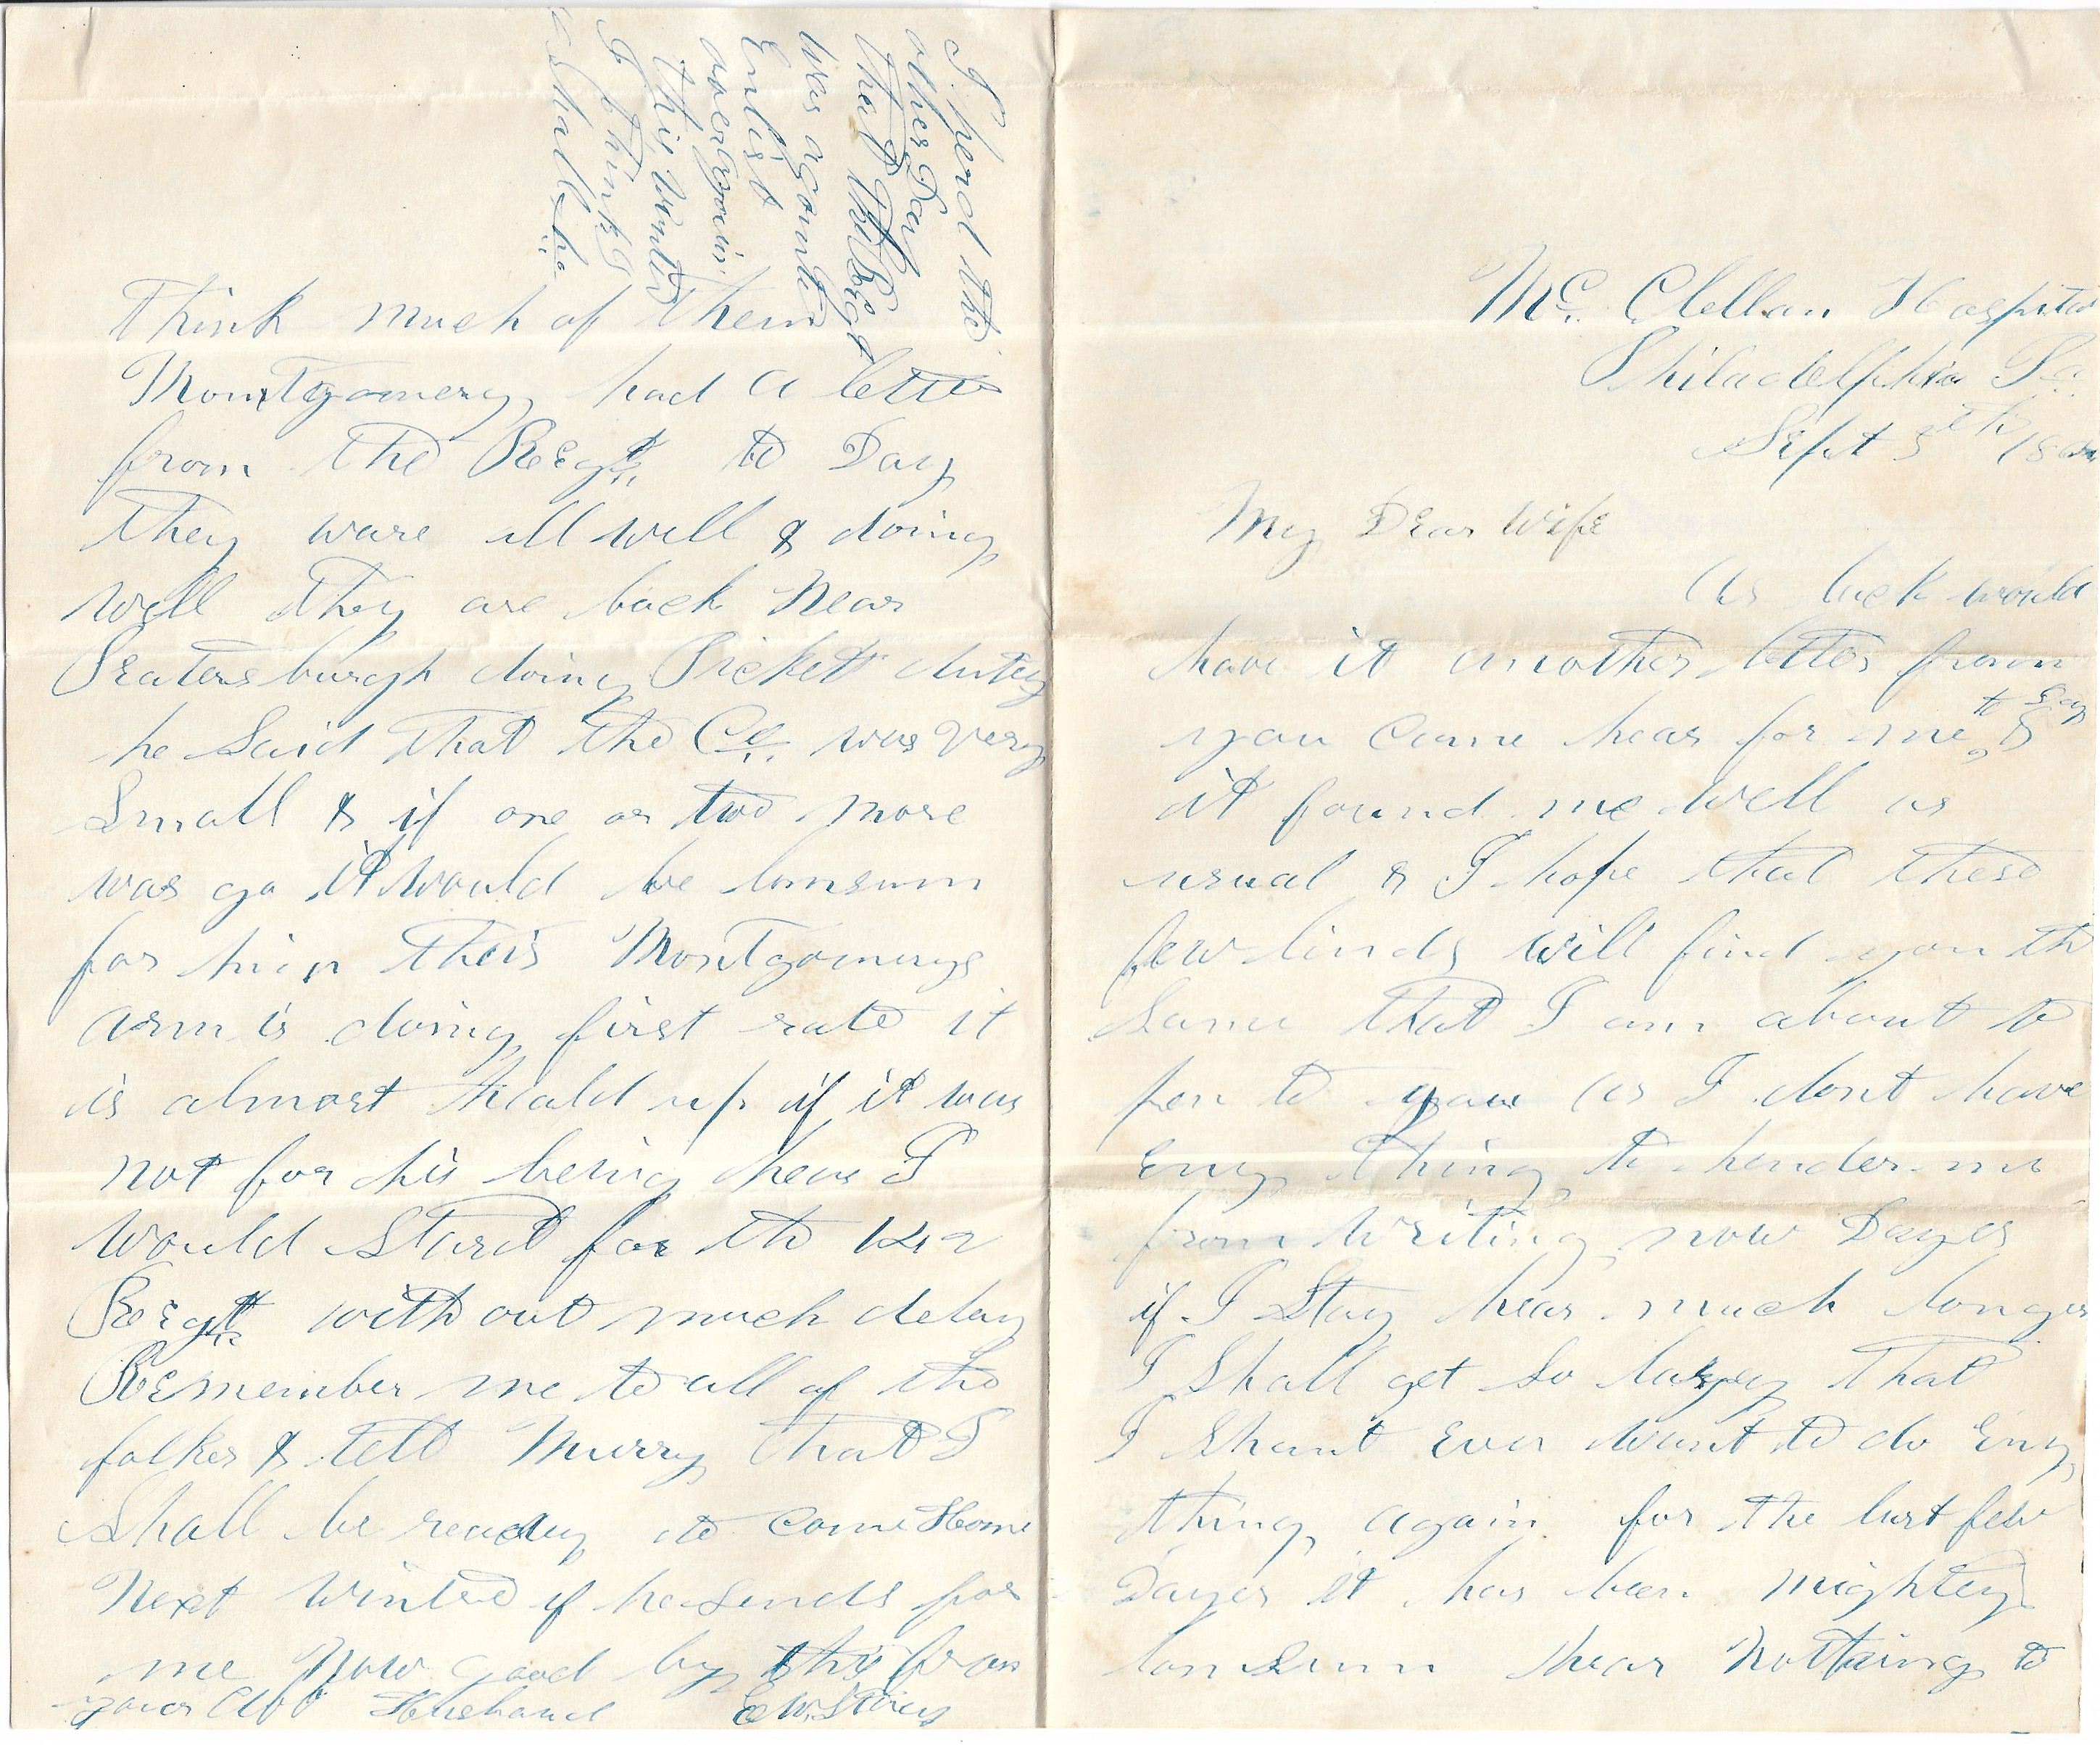 Mc. Clellan Hospital
Philadelphia Pa.
Sept 5th 186
My Dear Wife
As luck would
have it another letter from
you came hear for me to Day &
it found me well as
usual & I hope that these
few linds will find you the
same that I am about to
pen to you as I dont have
Eny thing to hender me
from writing now Dayes
if I Stay hear much longer
I Shall get so lazey that
I Shant Ever want to do Eny
thing again for the last few
Dayes it has been mightey
lonsum hear Nothing to
Think much of them
Montgomery had a letter
from the Regt. to Day
they ware all well & doing
well They are back Near
Peatersburgh doing Picket dutey
he Said That the Co. was very
Small & if one or two more
was go it would be lonsum
for him theis Montgomerys
arm is doing first rate it
is almost heald up if it was
not for his being hear I
would Start for the 142
Regt. with out much delay
Remember me to all of the
folkes & tell Murry that I
Shall be readey to come Home
Next Winter if he sends for
me Now good by this from
your Aff Husband E W. Stoers
I herd the
other Day
that the Regt
was agoint to
Enlist
over again
this winter
I think I
shall